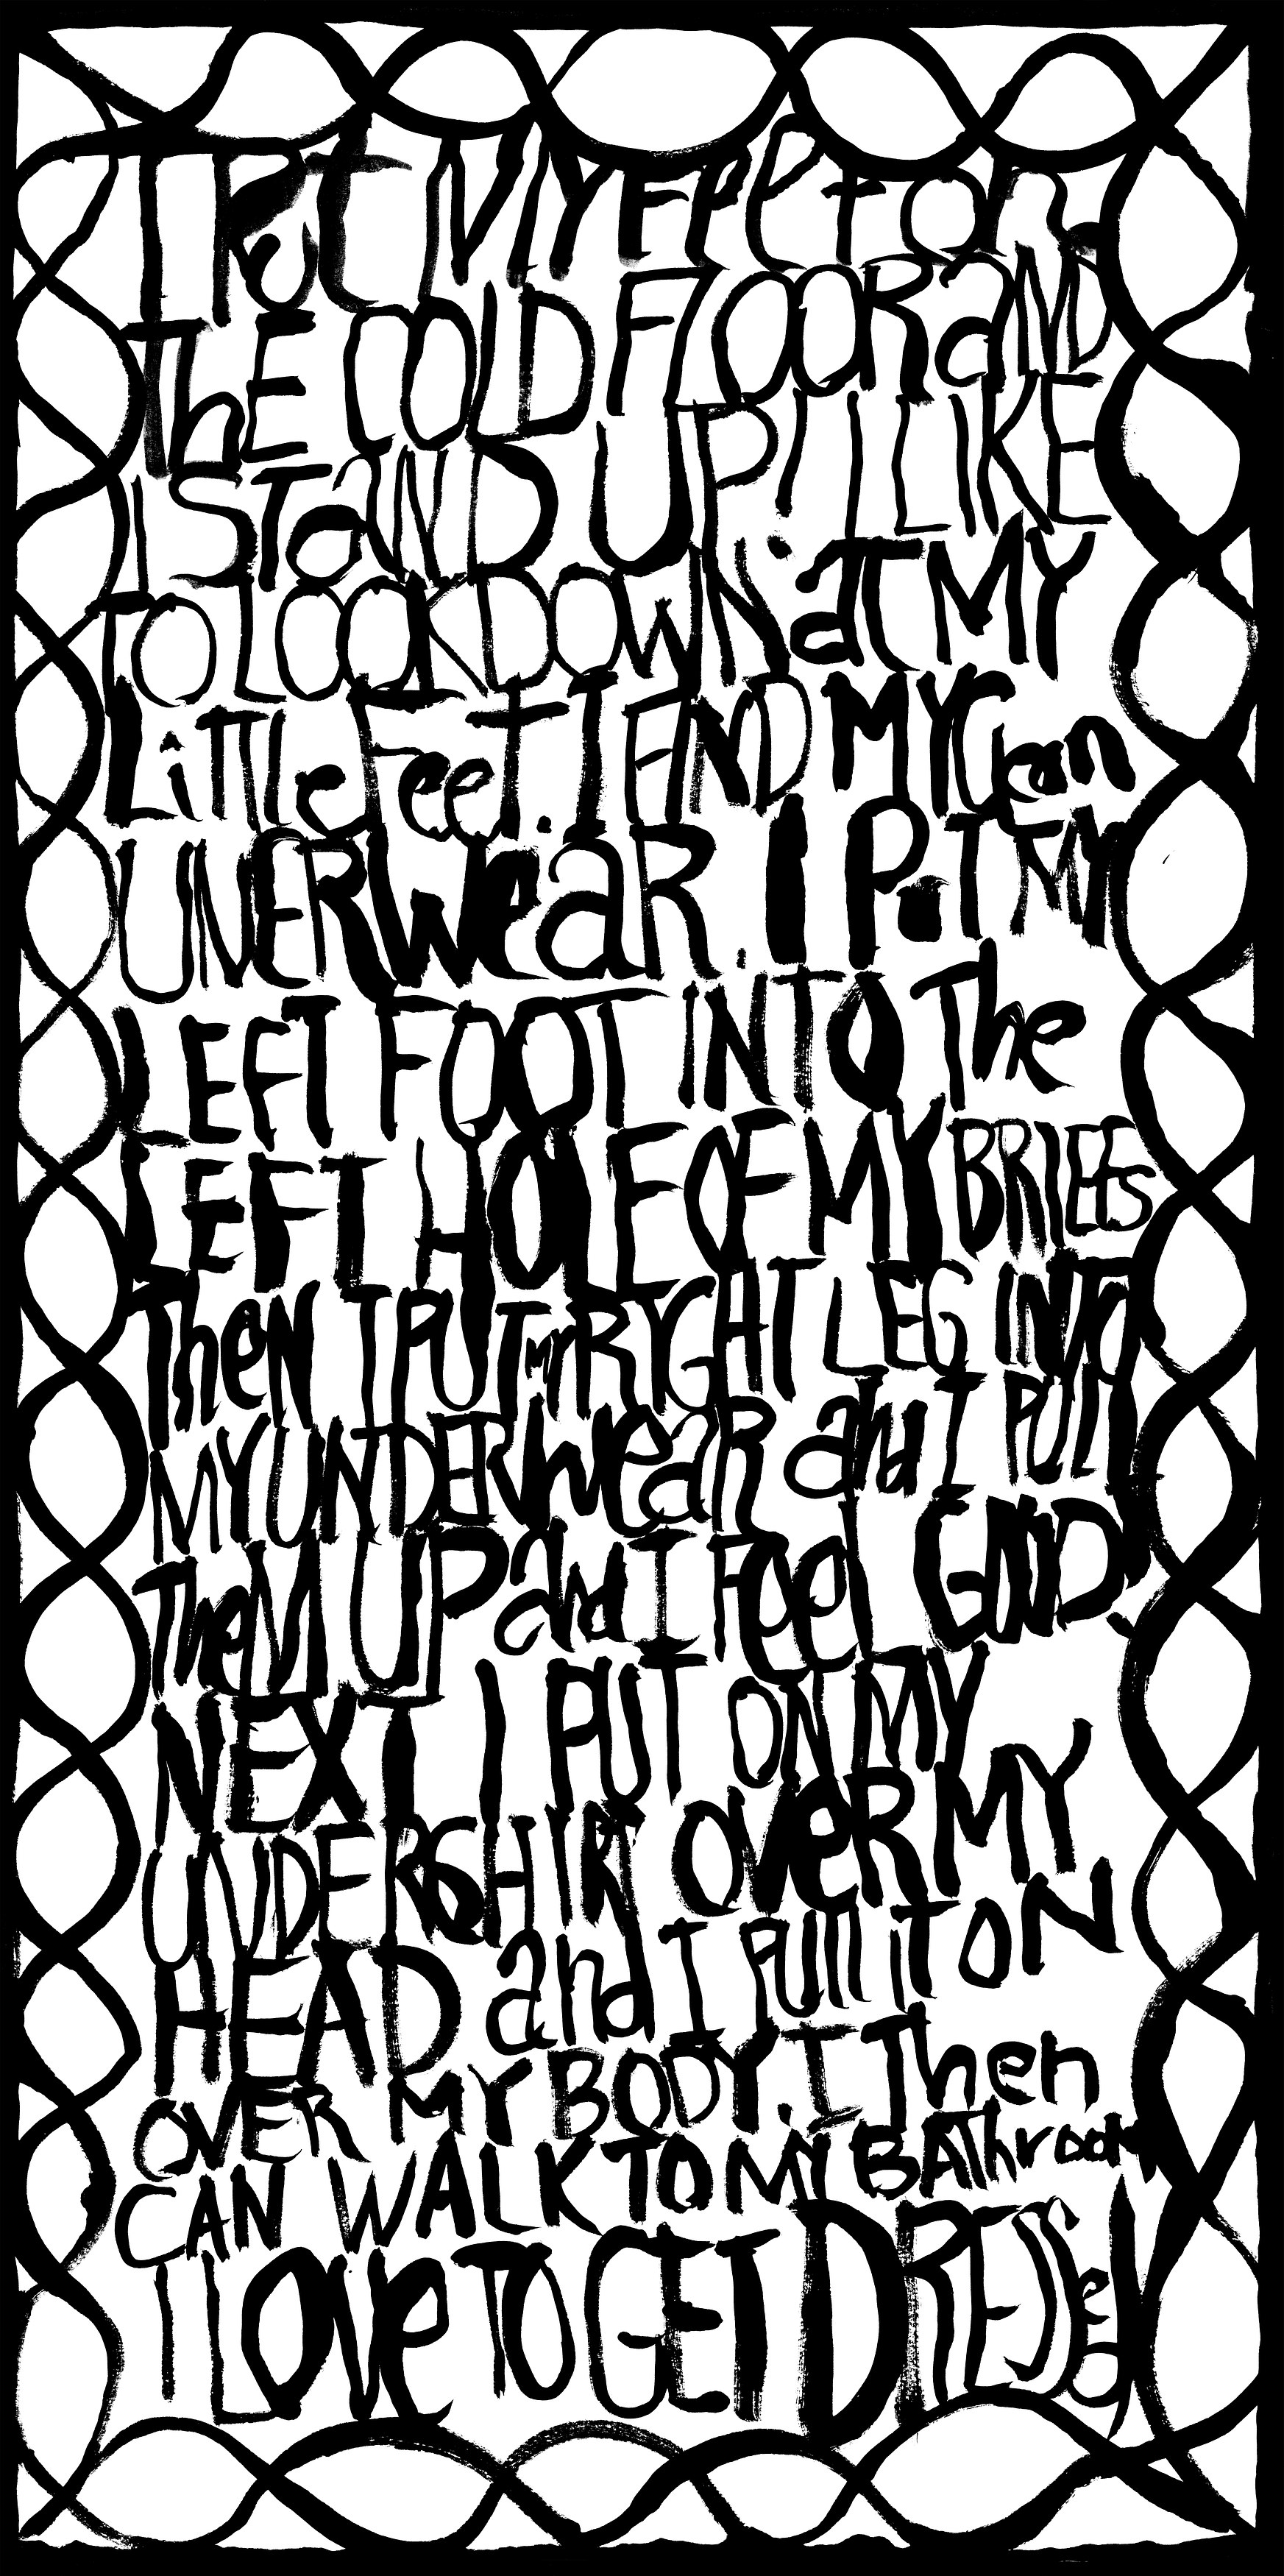 I PUt MY FeeT ON
ThE COLD FLOOR aND
I STaND UP! I LIKE
TO LOOK DOWN aT MY
LiTTle Feet. I FIND MY Clean
UNERWeaR. I PuT MY
LEFT FOOT INTO The
LEFT HOLE OF MY BRIEFS
TheN I PUT MY RIGHT LEG INTO
MY UNDERWeaR and I PULL
TheM UP and I FeeL GOOD.
NEXT I PUT ON MY
UNDERSHIRT OVeR MY
HEAD and I PUll iT ON
OVER MY BODY. I Then
CAN WALK TO MY BAThrooM
I LOVe TO GET DRESSed